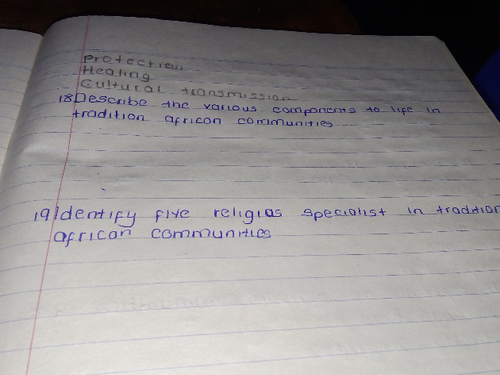 Protection
Healing
Cultural transmission
18 Describe the various components to life in
tradition african communities
19 Identify five religias specialist in tradition
african communities